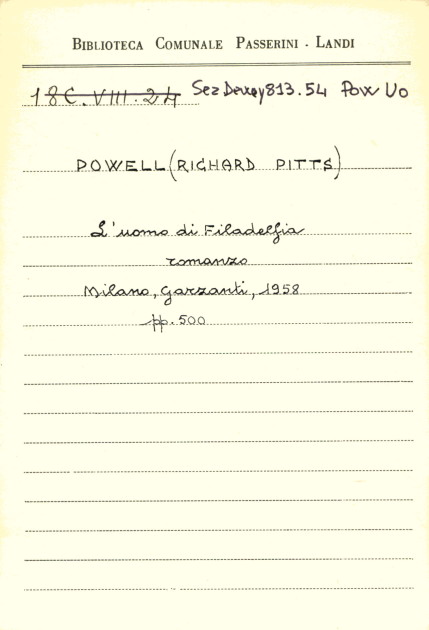 BIBLIOTECA COMUNALE PASSERINI - LANDI
18C.VIII.24 Sez Dewey 813.54 Pow Uo
POWELL (RICHARD PITTS)
L'uomo di Filadelfia
romanzo
Milano, Garzanti, 1958
pp. 500